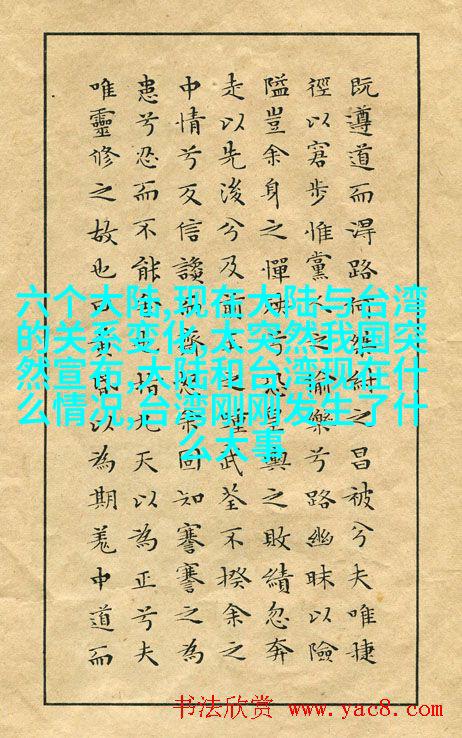 既遵道而淂路何桀紂之昌被兮夫唯捷
徑以窘步惟黨人之偷樂兮路幽昧以險
隘豈余身之憚殃兮恐皇輿之敗績忽奔
走以先後兮及前王之踵武荃不揆余之
中情兮反信讒齊怒余固知謇謇之為
患兮忍而不能舍也指九天以為正兮夫
唯靈修之故也曰黃昏以為期羌中道而
六个大陆,现在大陆与台湾
的关系变化 太突然我国突
然宣布,大陆和台湾现在什
么情况,台湾刚刚发生了什
么大事
书法欣赏 www.yac8.com